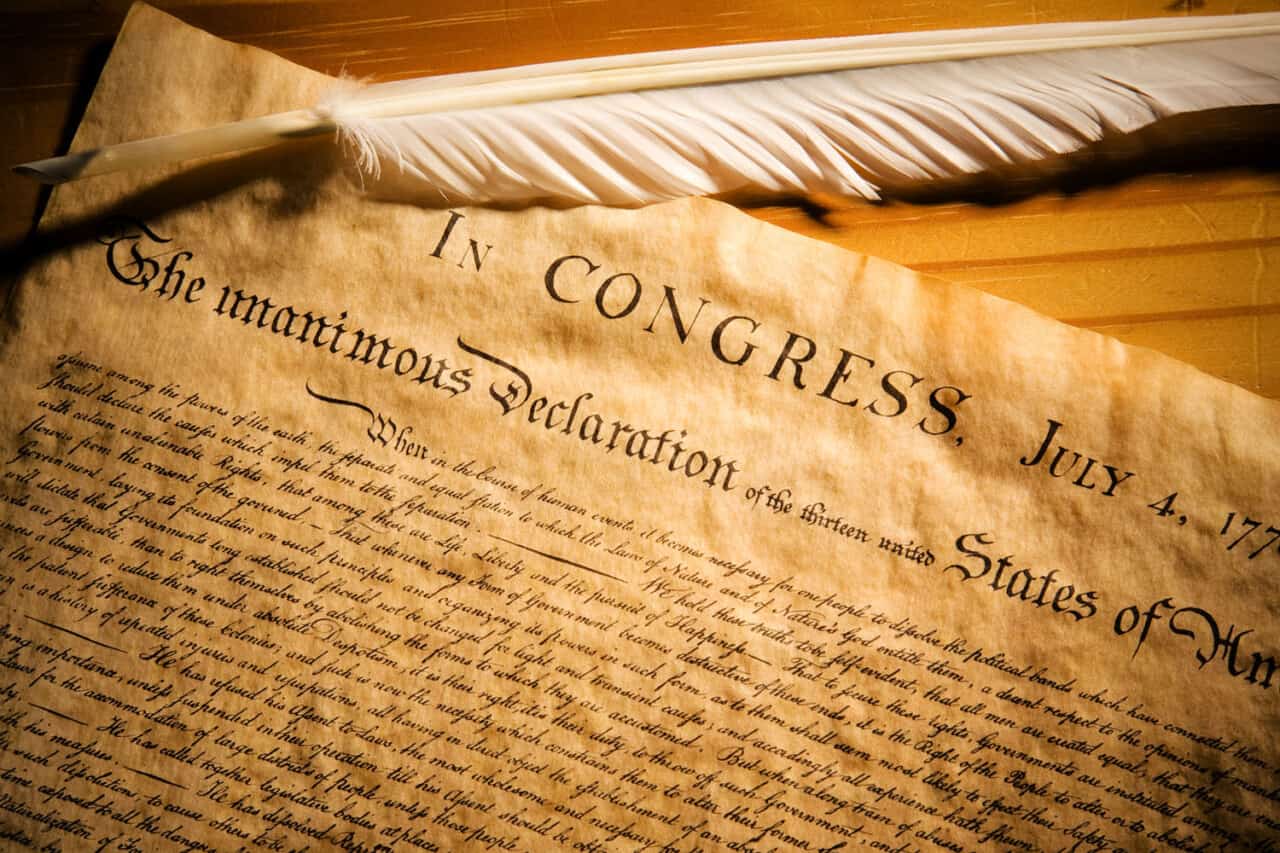 In CONGRESS, July 4, 177
The unanimous Declaration of the thirteen united States of Am
When in the Course of human events, it becomes necessary for one people to dissolve the political bands which have connected them
assume among the powers of the earth, the separate and equal station to which the Laws of Nature and of Nature's God entitle them, a decent respect to the opinions of
should declare the causes which impel them to the separation. We hold these truths to be self-evident, that all men are created equal, that they are
with certain unalienable Rights, that among these are Life, Liberty and the pursuit of Happiness.— That to secure these rights, Governments are instituted among
powers from the consent of the governed, — That whenever any Form of Government becomes destructive of these ends, it is the Right of the People to alter or to abolish
Government, laying its foundation on such principles and organizing its powers in such form, as to them shall seem most likely to effect their Safety
will dictate that Governments long established should not be changed for light and transient causes; and accordingly all experience hath shewn
are sufferable, than to right themselves by abolishing the forms to which they are accustomed. But when a long train of abuses
a design to reduce them under absolute Despotism, it is their right, it is their duty, to throw off such Government, and
the patient sufferance of these Colonies; and such is now the necessity which constrains them to alter their former
is a history of repeated injuries and usurpations, all having in direct object the establishment of an
He has refused his Assent to Laws, the most wholesome and necessary for
importance, unless suspended in their operation till his Assent should be
for the accommodation of large districts of people, unless those people
He has called together legislative bodies at places
his measures He has dissolved Rep
such dissolutions, to cause others to be
exposed to all the dangers